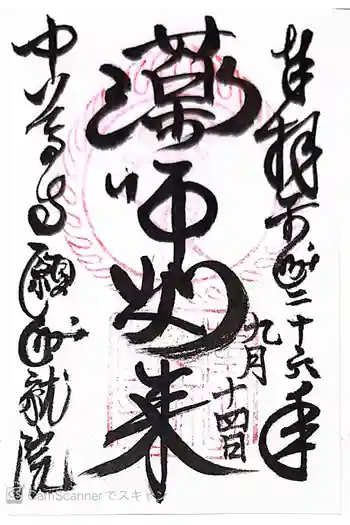 奉拝 平成二十六年
九月十四日
薬師如来
中尊寺 願成就院
CS CamScannerでスキャ